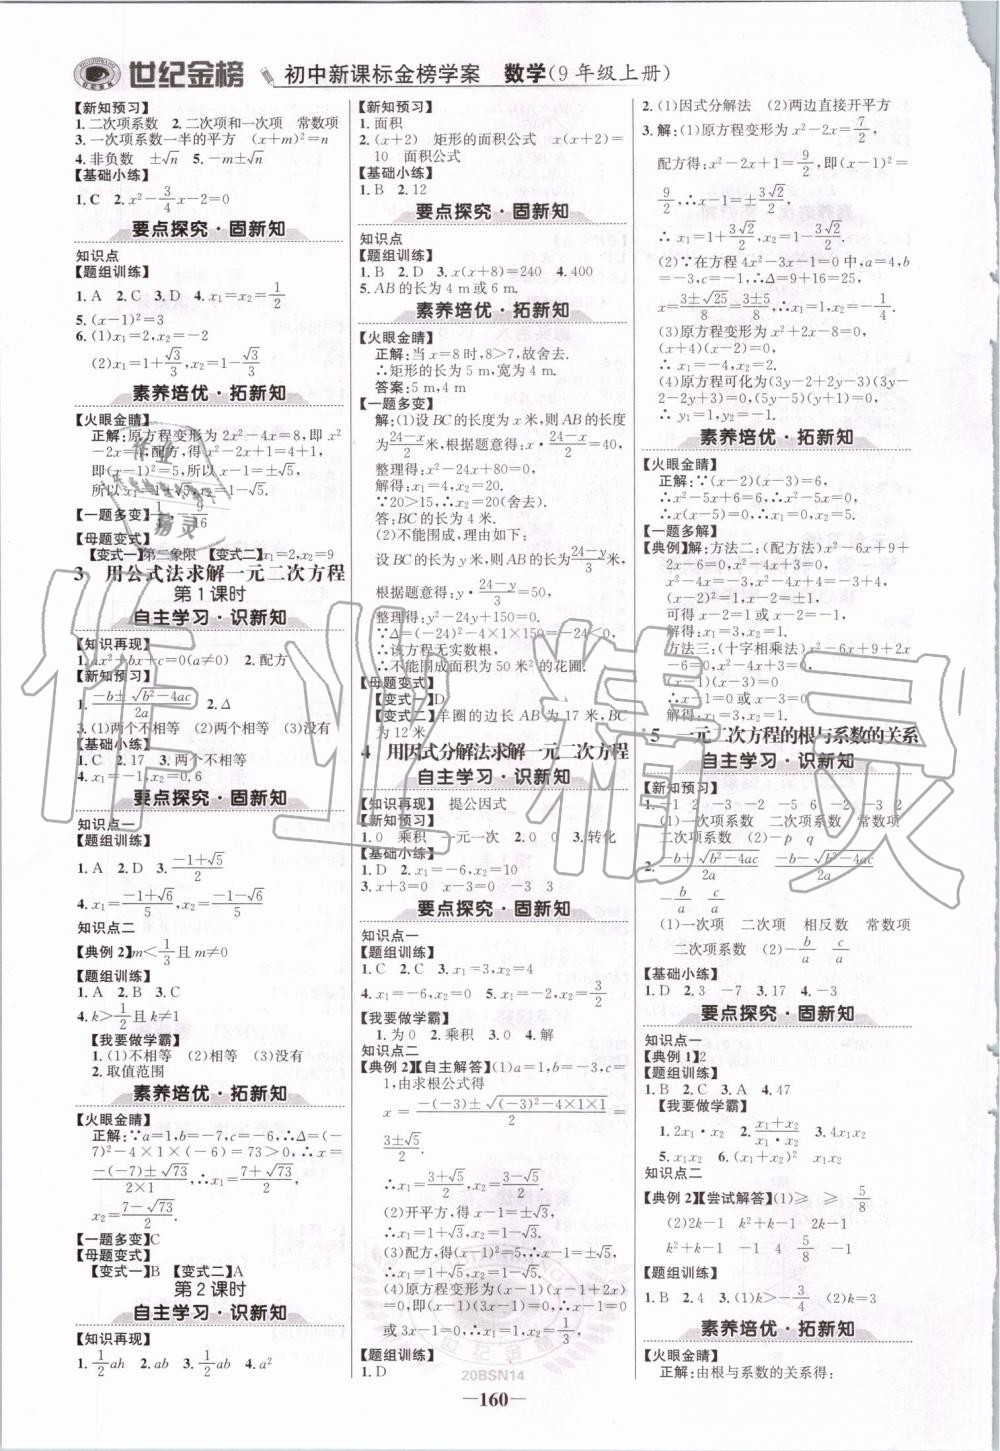 世纪金榜 初中新课标金榜学案 数学(9年级上册)
【新知预习】
1.二次项系数 2.二次项和一次项 常数项
3.一次项系数一半的平方 (x+m)²=n
4.非负数 ±√n 5.-m±√n
【基础小练】
1.C 2.x²-3/4x-2=0
要点探究·固新知
知识点
【题组训练】
1.A 2.C 3.D 4.x₁=x₂=1/2
5.(x-1)²=3
6.(1)x₁=2,x₂=-2
(2)x₁=1+√3/3,x₂=1-√3/3
素养培优·拓新知
【火眼金睛】
正解:原方程变形为2x²-4x=8,即x²
-2x=4,配方,得x²-2x+1=4+1,
即(x-1)²=5,所以x-1=±√5,
所以x₁=1+√5,x₂=1-√5.
【一题多变】1/4 -9/16
【母题变式】
【变式一】第二象限 【变式二】x₁=2,x₂=9
3 用公式法求解一元二次方程
第1课时
自主学习·识新知
【知识再现】
1.ax²+bx+c=0(a≠0) 2.配方
【新知预习】
1.(-b±√(b²-4ac))/2a 2.Δ
3.(1)两个不相等 (2)两个相等 (3)没有
【基础小练】
1.C 2.17 3.两个不相等
4.x₁=-1,x₂=0.6
要点探究·固新知
知识点一
【题组训练】
1.A 2.D 3.(-1+√5)/2
4.x₁=(-1+√6)/5,x₂=(-1-√6)/5
知识点二
【典例2】m<1/3且m≠0
【题组训练】
1.A 2.B 3.C
4.k>1/2且k≠1
【我要做学霸】
1.(1)不相等 (2)相等 (3)没有
2.取值范围
素养培优·拓新知
【火眼金睛】
正解:∵a=1,b=-7,c=-6,∴Δ=(-
7)²-4×1×(-6)=73>0,∴x=
(-(-7)±√73)/(2×1),∴x₁=(7+√73)/2,
x₂=(7-√73)/2.
【一题多变】C
【母题变式】
【变式一】B 【变式二】A
第2课时
自主学习·识新知
【知识再现】
1.1/2ah 2.ab 3.1/2ab 4.a²
【新知预习】
1.面积
2.(x+2) 矩形的面积公式 x(x+2)=
10 面积公式
【基础小练】
1.B 2.12
要点探究·固新知
知识点
【题组训练】
1.B 2.D 3.x(x+8)=240 4.400
5.AB的长为4 m或6 m.
素养培优·拓新知
【火眼金睛】
正解:当x=8时,8>7,故舍去.
∴矩形的长为5 m,宽为4 m.
答案:5 m,4 m
【一题多变】
解:(1)设BC的长度为x米,则AB的长度
为(24-x)/2米,根据题意得:x·(24-x)/2=40,
整理得:x²-24x+80=0,
解得:x₁=4,x₂=20.
∵20>15,∴x₂=20(舍去).
答:BC的长为4米.
(2)不能围成,理由如下:
设BC的长为y米,则AB的长为(24-y)/3米,
根据题意得:y·(24-y)/3=50,
整理得:y²-24y+150=0.
∵Δ=(-24)²-4×1×150=-24<0,
∴该方程无实数根,
∴不能围成面积为50米²的花圃.
【母题变式】
【变式一】D
【变式二】羊圈的边长AB为17米,BC
为12米.
4 用因式分解法求解一元二次方程
自主学习·识新知
【知识再现】 提公因式
【新知预习】
1.0 乘积 一元一次 2.0 0 3.转化
【基础小练】
1.D 2.x₁=-6,x₂=10
3.x+3=0 x-3=0 -3 3
要点探究·固新知
知识点一
【题组训练】
1.C 2.C 3.x₁=3,x₂=4
4.x₁=-6,x₂=0 5.x₁=-2,x₂=3/2
【我要做学霸】
1.为0 2.乘积 3.0 4.解
知识点二
【典例2】【自主解答】(1)a=1,b=-3,c=
1,由求根公式得
x=(-(-3)±√((-3)²-4×1×1))/2=
(3±√5)/2.
∴x₁=(3+√5)/2,x₂=(3-√5)/2.
(2)开平方,得x-1=±√3,
∴x₁=1+√3,x₂=1-√3.
(3)配方,得(x-1)²=5,∴x-1=±√5,
∴x₁=1+√5,x₂=1-√5.
(4)原方程变形为(x-1)(x-1+2x)
=0,即(x-1)(3x-1)=0,∴x-1=0
或3x-1=0,∴x₁=1,x₂=1/3.
【题组训练】
1.D
2.(1)因式分解法 (2)两边直接开平方
3.解:(1)原方程变形为x²-2x=7/2,
配方得:x²-2x+1=9/2,即(x-1)²=
9/2,∴x-1=±3√2/2,
∴x₁=1+3√2/2,x₂=1-3√2/2.
(2)∵在方程4x²-3x-1=0中,a=4,b
=-3,c=-1,∴Δ=9+16=25,
x=(3±√25)/8=(3±5)/8,∴x₁=1,x₂=-1/4.
(3)原方程变形为x²+2x-8=0,
(x+4)(x-2)=0,
∴x₁=-4,x₂=2.
(4)原方程可化为(3y-2+2y-3)(3y
-2-2y+3)=0,即(5y-5)(y+1)=0,
∴y₁=1,y₂=-1.
素养培优·拓新知
【火眼金睛】
正解:∵(x-2)(x-3)=6,
∴x²-5x+6=6,∴x²-5x=0,
∴x₁=0,x₂=5.
【一题多解】
【典例】解:方法二:(配方法)x²-6x+9+
2x-6=0,x²-4x+3=0,
x²-4x=-3,x²-4x+4=-3+4,
(x-2)²=1,x-2=±1,
可得x-2=1或x-2=-1,
解得:x₁=3,x₂=1.
方法三:(十字相乘法)x²-6x+9+2x
-6=0,x²-4x+3=0,
(x-1)(x-3)=0,
∴x-1=0或x-3=0,
解得:x₁=1,x₂=3.
5 一元二次方程的根与系数的关系
自主学习·识新知
【新知预习】
1.-1 2 -3 -2 -5 6 -2 -3 2
(1)一次项系数 二次项系数 常数项
二次项系数 (2)-p q
2.(-b+√(b²-4ac))/2a (-b-√(b²-4ac))/2a
-b/a c/a
(1)一次项 二次项 相反数 常数项
二次项系数 (2)-b/a c/a
【基础小练】
1.D 2.3 -7 3.17 4.-3
要点探究·固新知
知识点一
【典例1】2
【题组训练】
1.B 2.C 3.A 4.47
【我要做学霸】
1.2x₁·x₂ 2.(x₁+x₂)/(x₁·x₂) 3.4x₁x₂
5.x₁x₂ 6.(x₁+x₂) x₁x₂
知识点二
【典例2】【尝试解答】(1)≥ ≥ 5/8
(2)2k-1 k²+k-1 2k-1
k²+k-1 -4 5/8 -4
【题组训练】
1.B 2.4 3.(1)k>-3/4 (2)k=3
素养培优·拓新知
【火眼金睛】
正解:由根与系数的关系得:
20BSN14
世纪金榜
作业精灵
作业精灵
—160—